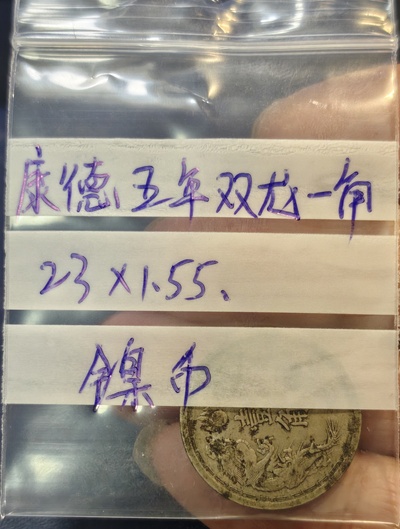 康德五年双龙一角
23×1.55、
镍币
壹角